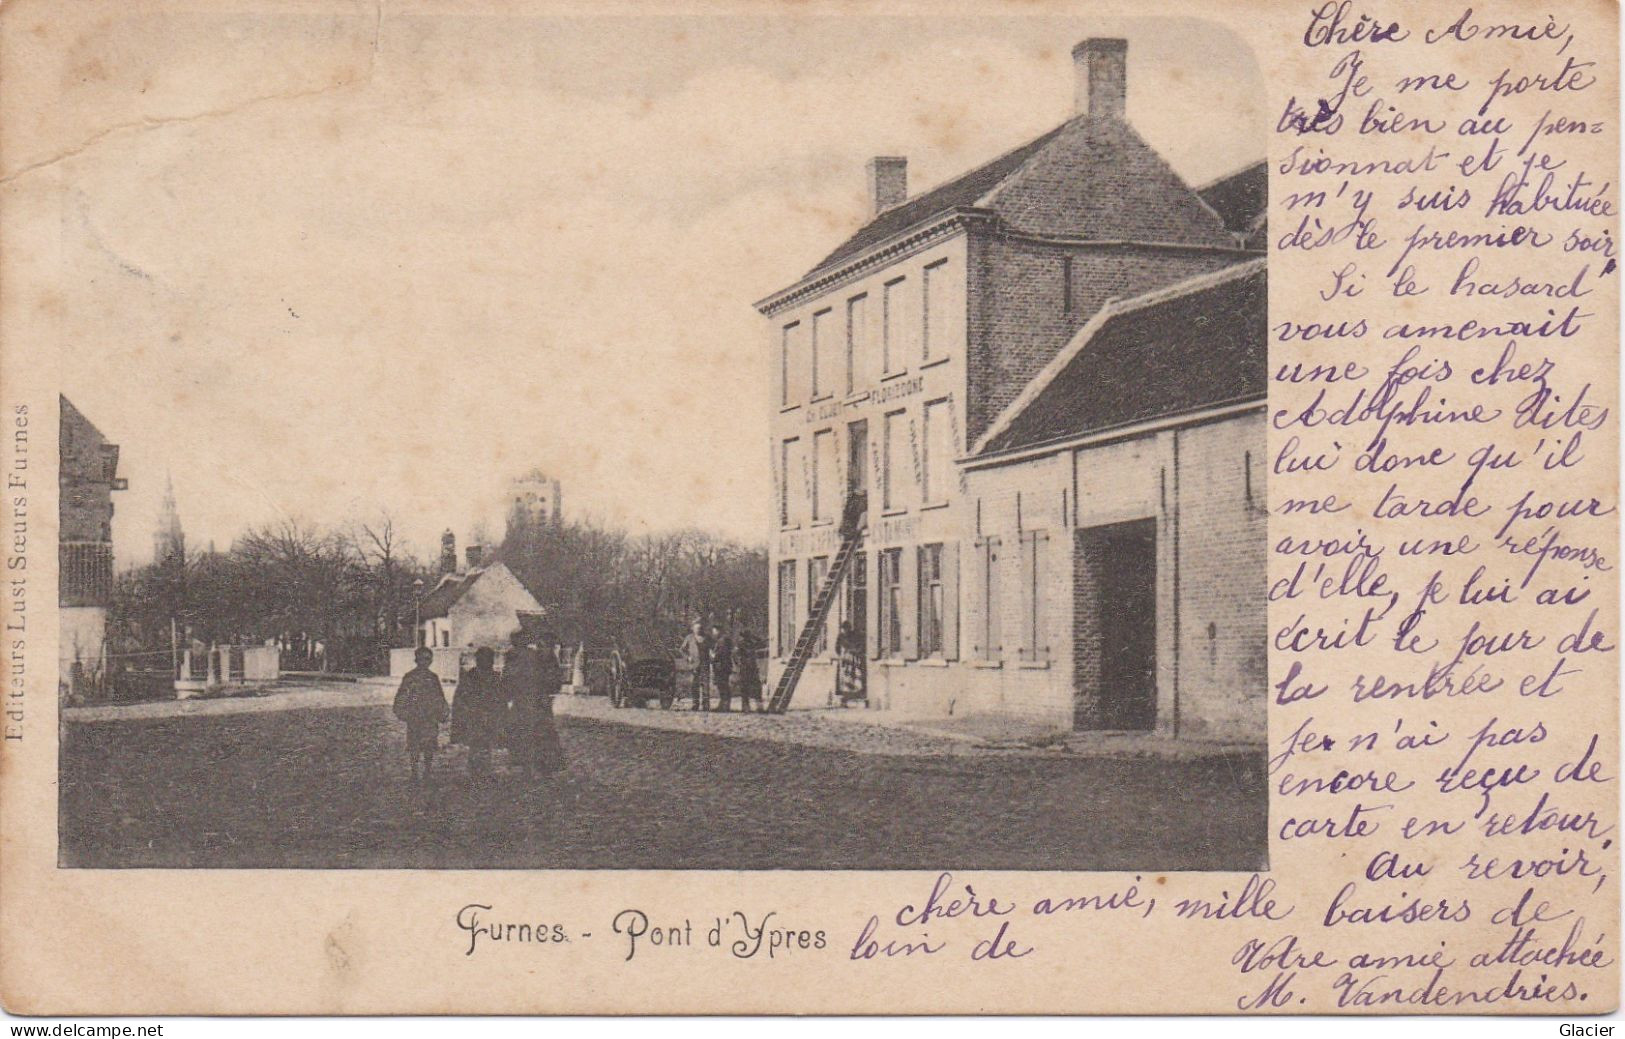 Chère Amie,
Je me porte
très bien au pen=
sionnat et je
m'y suis habituée
dès le premier soir.
Si le hasard
vous amenait
une fois chez
Adolphine dites
lui donc qu'il
me tarde pour
avoir une réponse
d'elle, je lui ai
écrit le jour de
la rentrée et
je n'ai pas
encore reçu de
carte en retour.
Au revoir,
chère amie, mille baisers de
loin de
Votre amie attachée
M. Vandendries.
Furnes - Pont d'Ypres
Editeurs Lust Sœurs Furnes
FLORIZOONE
ESTAMINET
Glacier
www.delcampe.net